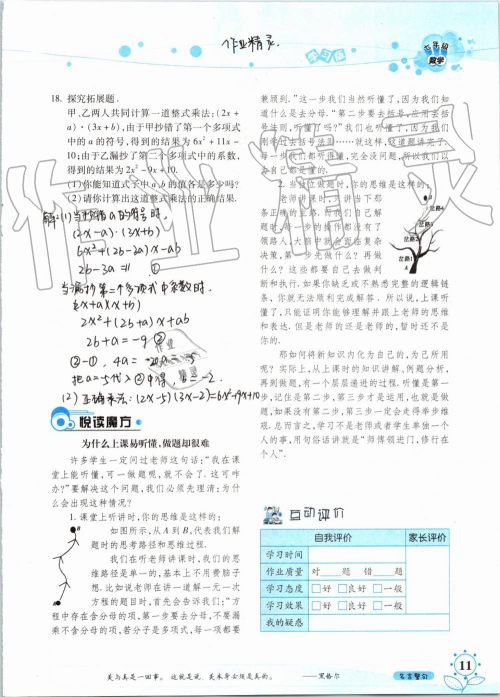 作业精灵
学习报
七年级
数学
18. 探究拓展题.
甲、乙两人共同计算一道整式乘法:(2x+
a)·(3x+b),由于甲抄错了第一个多项式
中的a的符号,得到的结果为6x²+11x-
10;由于乙漏抄了第二个多项式中的系数,
得到的结果为2x²-9x+10.
(1)你能知道式子中a,b的值各是多少吗?
(2)请你计算出这道整式乘法的正确结果.
解:(1)当抄错a的符号时,
(2x-a)·(3x+b)
6x²+(2b-3a)x-ab
2b-3a=11 ①
当漏抄第二个多项式中系数时,
(2x+a)(x+b)
2x²+(2b+a)x+ab
2b+a=-9 ②
②-①, 4a=-20, a=-5
把a=-5代入②中得, b=-2.
(2)正确乘法:(2x-5)(3x-2)=6x²-19x+10
悦读魔方
为什么上课易听懂,做题却很难
许多学生一定问过老师这句话:“我在课
堂上能听懂,可一做题呢,就不会了.这可咋
办?”要解决这个问题,我们必须先理清:为什
么会出现这种情况?
1. 课堂上听讲时,你的思维是这样的:
如图所示,从A到B,代表我们解
题时的思考路径和思维过程.
我们在听老师讲课时,我们的思
维路径是单一的,基本上不用费脑子
想.比如说老师在讲一道解一元一次
方程的题目时,首先会告诉我们:“方
程中存在含分母的项,第一步要去分母,不要漏
乘不含分母的项,若分子是多项式,每一项都要
兼顾到.”这一步我们当然听懂了,因为我们知
道什么是去分母.“第二步要去括号,应用去括
号法则,听懂了吗?”我们也听懂了,因为我们
刚学过去括号法则……就这样,这道题讲完了,
每一步我们都听得懂,完全没问题,所以我们以
为自己都是懂的.
2. 当独立做题时,你的思维是这样的:
老师讲课时,只讲当下那
条正确的主路.而我们自己解
题时,每一步的操作都没有了
领路人,大脑中就会面临复杂
决策,第一步先做什么?再做
什么?这些都要自己去做判
断和执行.如果你缺乏或不熟悉完整的逻辑链
条,你就无法顺利完成解答.所以说,上课听
懂了,只能证明你能够理解并跟上老师的思维
和表达,但是老师的还是老师的,暂时还不是
你的.
那如何将新知识内化为自己的,为己所用
呢?实际上,从上课时的知识讲解,例题分析,
再到做题,有一个层层递进的过程.听懂是第一
步,记住是第二步,第三步才是运用,也就是做
题,如果没有第二步,第三步一定会走得举步维
艰.总而言之,学习不是老师或者学生单独一个
人的事,用句俗话讲就是“师傅领进门,修行在
个人”.
互动评价
自我评价 家长评价
学习时间
作业质量 对 题 错 题
学习态度 □好 □良好 □一般
学习效果 □好 □良好 □一般
我的疑惑
美与真是一回事,这就是说,美本身必须是真的.
——黑格尔
名言警句
11